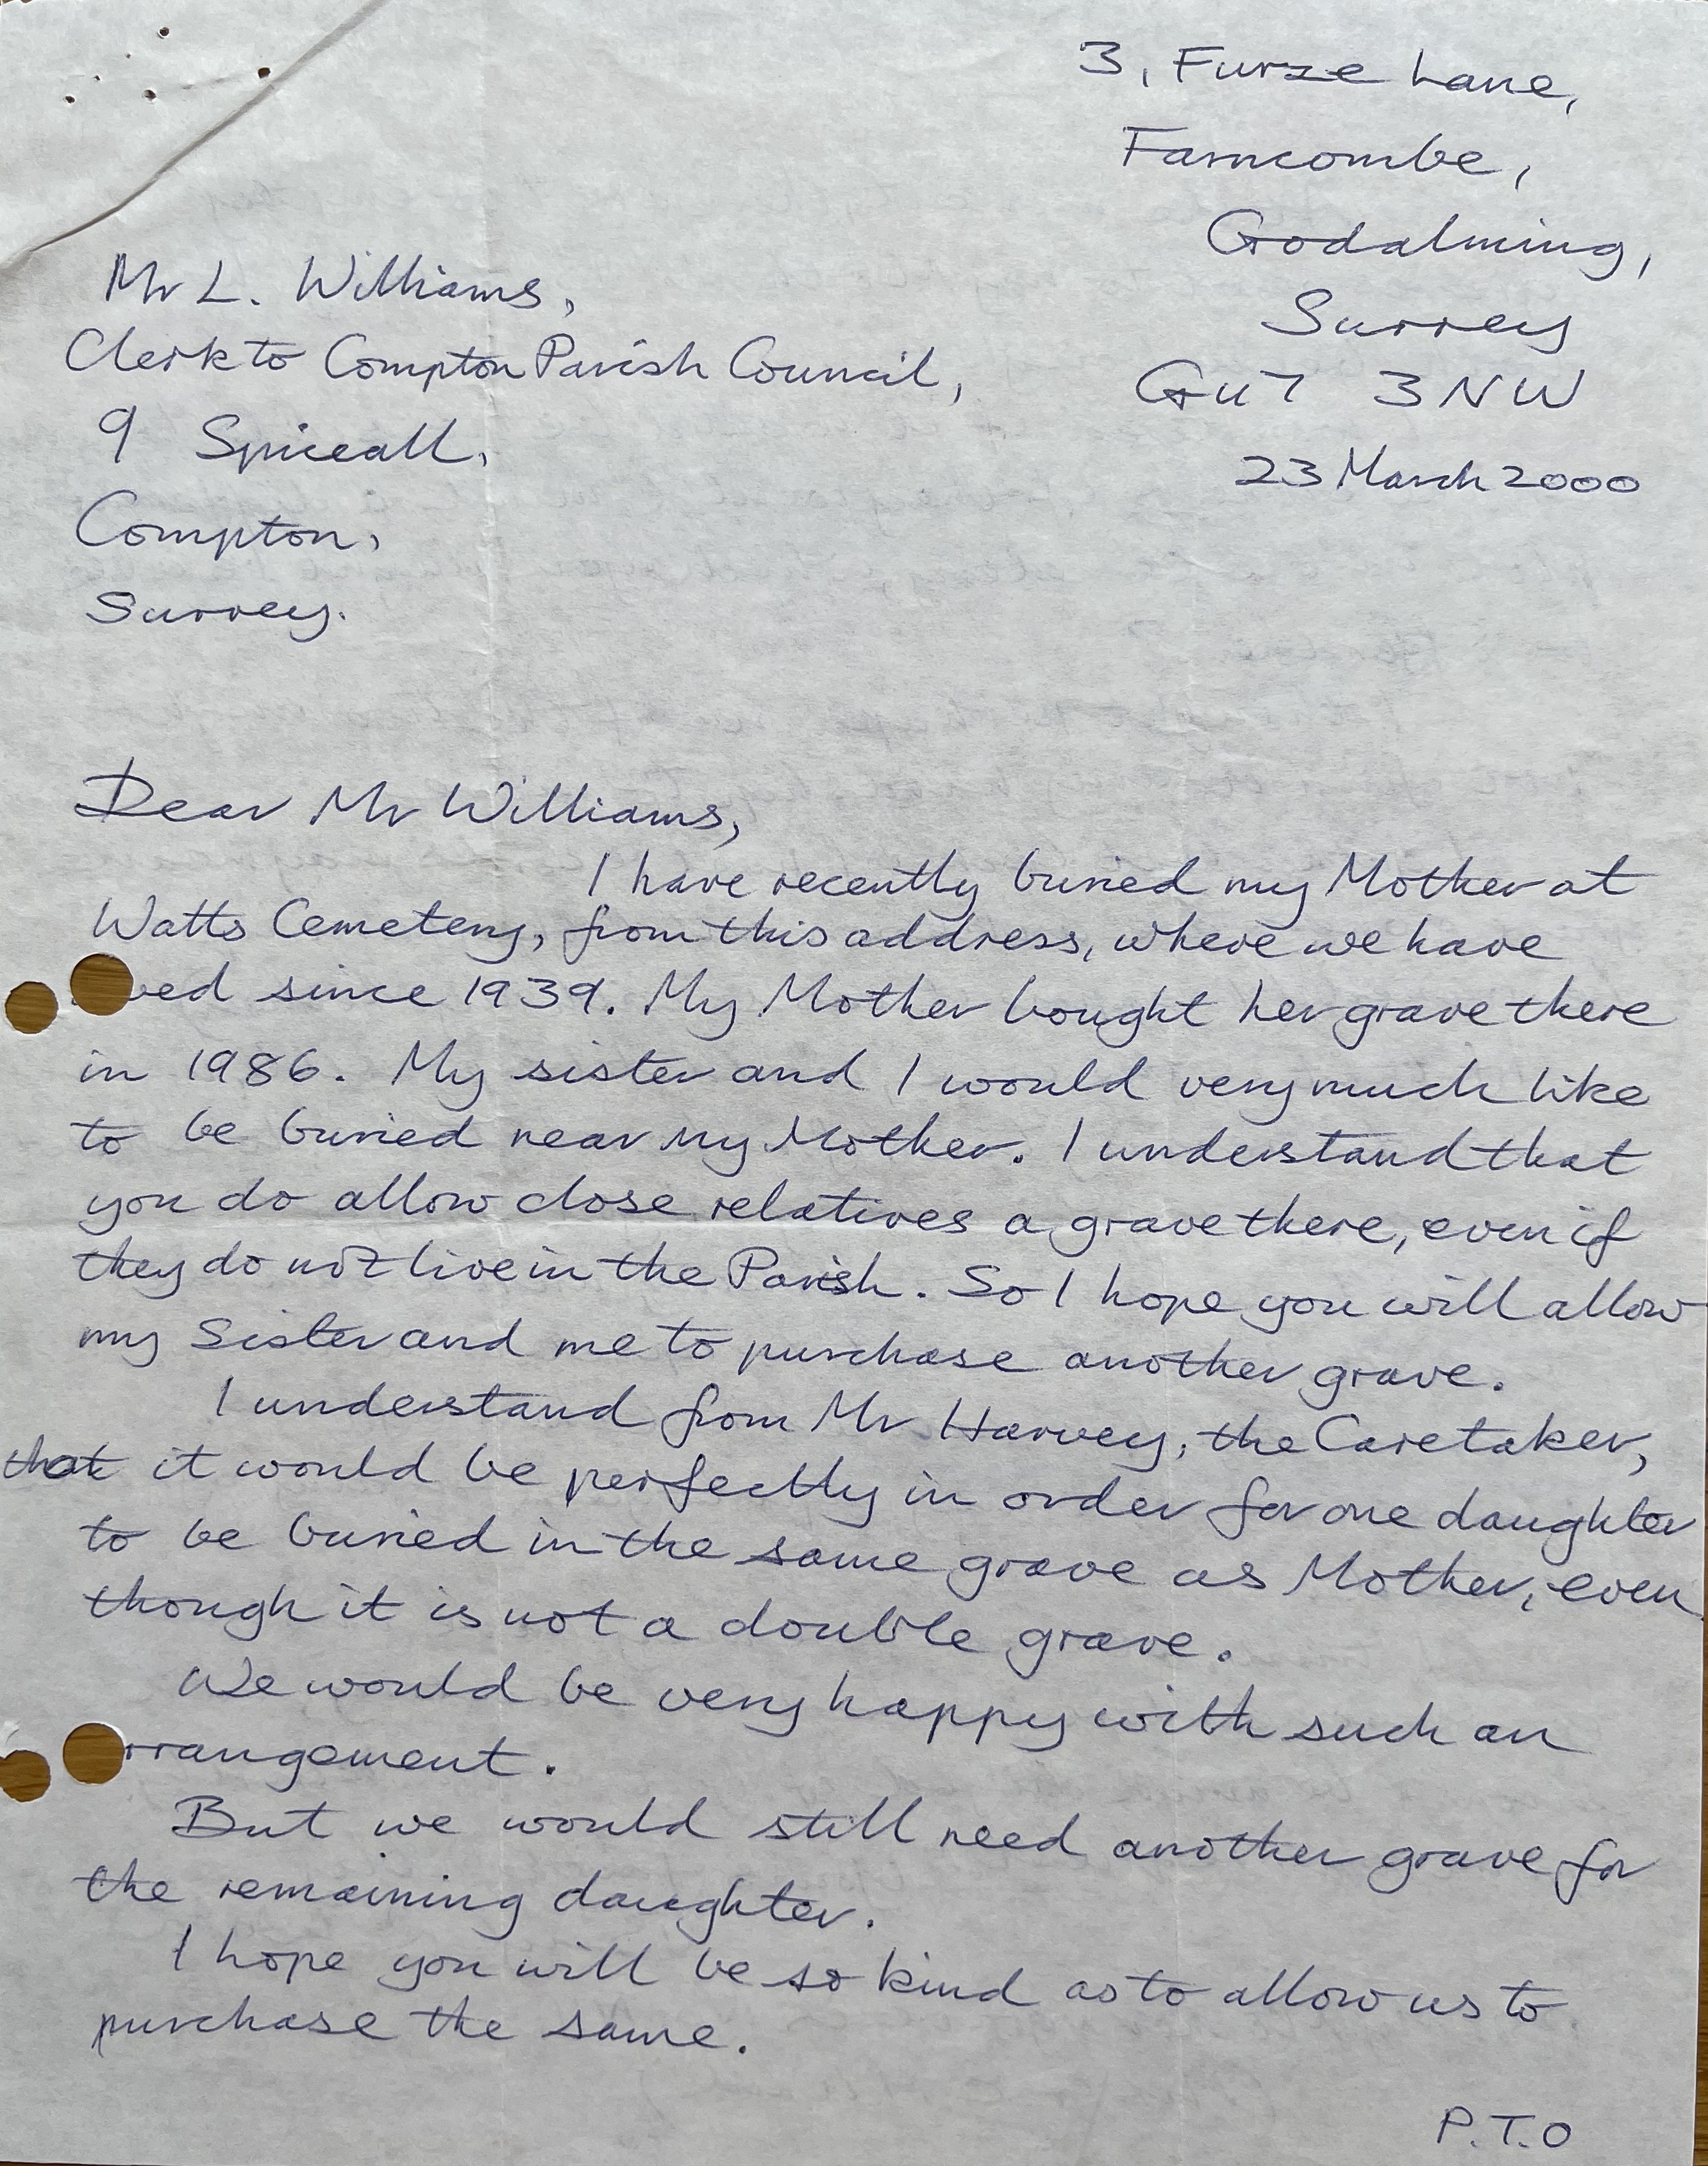 3, Furze Lane,
Farncombe,
Godalming,
Surrey
GU7 3NW
23 March 2000
Mr L. Williams,
Clerk to Compton Parish Council,
9 Spiceall,
Compton,
Surrey.
Dear Mr Williams,
I have recently buried my Mother at
Watts Cemetery, from this address, where we have
ved since 1939. My Mother bought her grave there
in 1986. My sister and I would very much like
to be buried near my Mother. I understand that
you do allow close relatives a grave there, even if
they do not live in the Parish. So I hope you will allow
my Sister and me to purchase another grave.
I understand from Mr Harvey, the Caretaker,
that it would be perfectly in order for one daughter
to be buried in the same grave as Mother, even
though it is not a double grave.
We would be very happy with such an
rrangement.
But we would still need another grave for
the remaining daughter.
I hope you will be so kind as to allow us to
purchase the same.
P.T.O